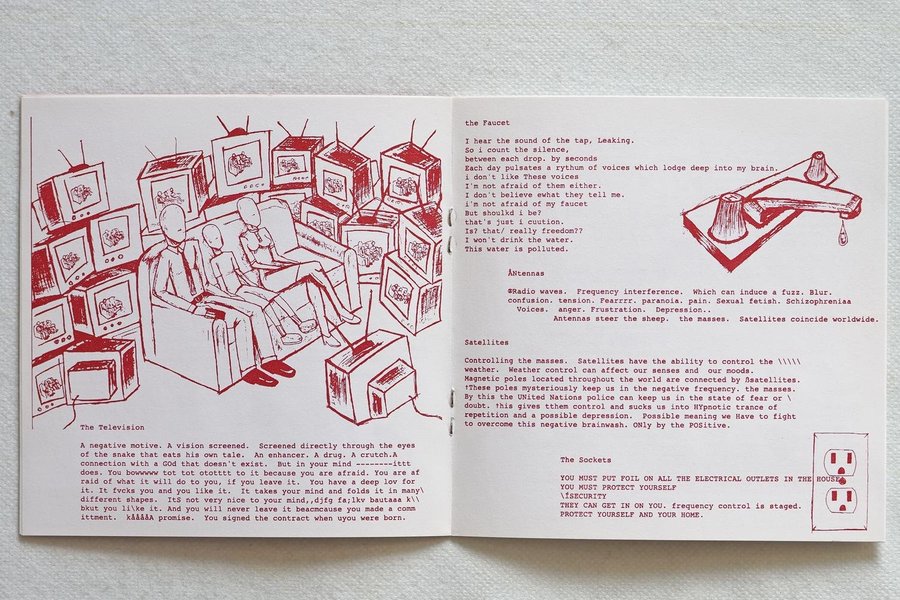 The Television
A negative motive. A vision screened.  Screened directly through the eyes
of the snake that eats his own tale.  An enhancer. A drug. A crutch.A
connection with a GOd that doesn't exist.  But in your mind --------ittt
does. You bowwwww tot tot ototttt to it because you are afraid. You are af
raid of what it will do to you, if you leave it.  You have a deep lov for
it. It fvcks you and you like it.  It takes your mind and folds it in many\
different shapes.  ItS not very nice to your mind,,djfg fa;lkv bautaaa k\\
bkut you li\ke it. And you will never leave it beacmcause you made a comm
ittment.  kÅÅÅÅA promise.  You signed the contract when uyou were born.
the Faucet
I hear the sound of the tap, Leaking.
So i count the silence,
between each drop. by seconds
Each day pulsates a rythum of voices which lodge deep into my brain.
i don't like These voices
I'm not afraid of them either.
I don't believe ewhat they tell me.
i'm not afraid of my faucet
But shoulkd i be?
that's just i cuution.
Is? that/ really freedom??
I won't drink the water.
This water is polluted.
ÅNtennas
®Radio waves.  Frequency interference.  Which can induce a fuzz. Blur.
confusion. tension. Fearrrr. paranoia. pain. Sexual fetish. Schizophreniaa
Voices.  anger. Frustration.  Depression..
Antennas steer the sheep.  the masses.  Satellites coincide worldwide.
Satellites
Controlling the masses.  Satellites have the ability to control the \\\\\
weather.  Weather control can affect our senses and  our moods.
Magnetic poles located throughout the world are connected by ßsatellites.
†These poles mysteriously keep us in the negative frequency. the masses.
By this the UNited Nations police can keep us in the state of fear or \
doubt. †his gives tthem control and sucks us into HYpnotic trance of
repetition and a possible depression.  Possible meaning we Have to fight
to overcome this negative brainwash. ONly by the POSitive.
The Sockets
YOU MUST PUT FOIL ON ALL THE ELECTRICAL OUTLETS IN THE HOUSE
YOU MUST PROTECT YOURSELF
\ÍSECURITY
THEY CAN GET IN ON YOU. frequency control is staged.
PROTECT YOURSELF AND YOUR HOME.